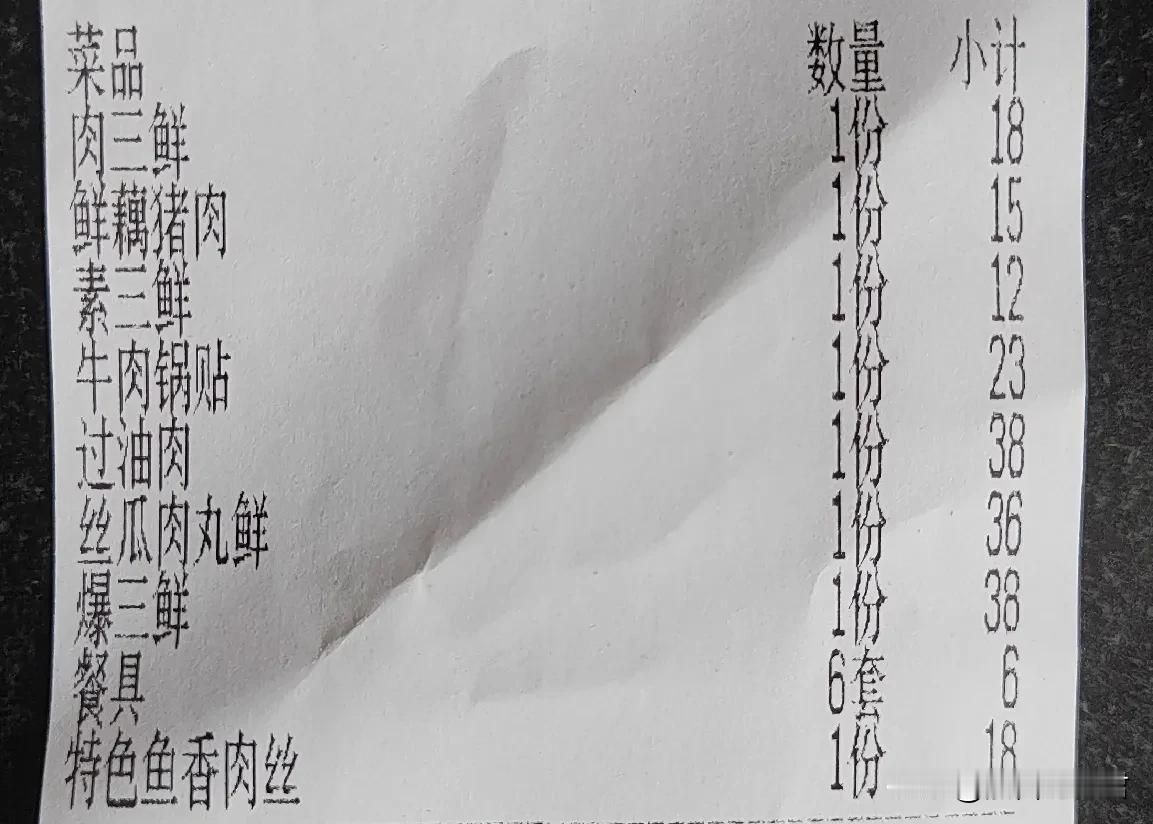 菜品 数量 小计
肉三鲜 1份 18
鲜藕猪肉 1份 15
素三鲜 1份 12
牛肉锅贴 1份 23
过油肉 1份 38
丝瓜肉丸鲜 1份 36
爆三鲜 1份 38
餐具 6套 6
特色鱼香肉丝 1份 18